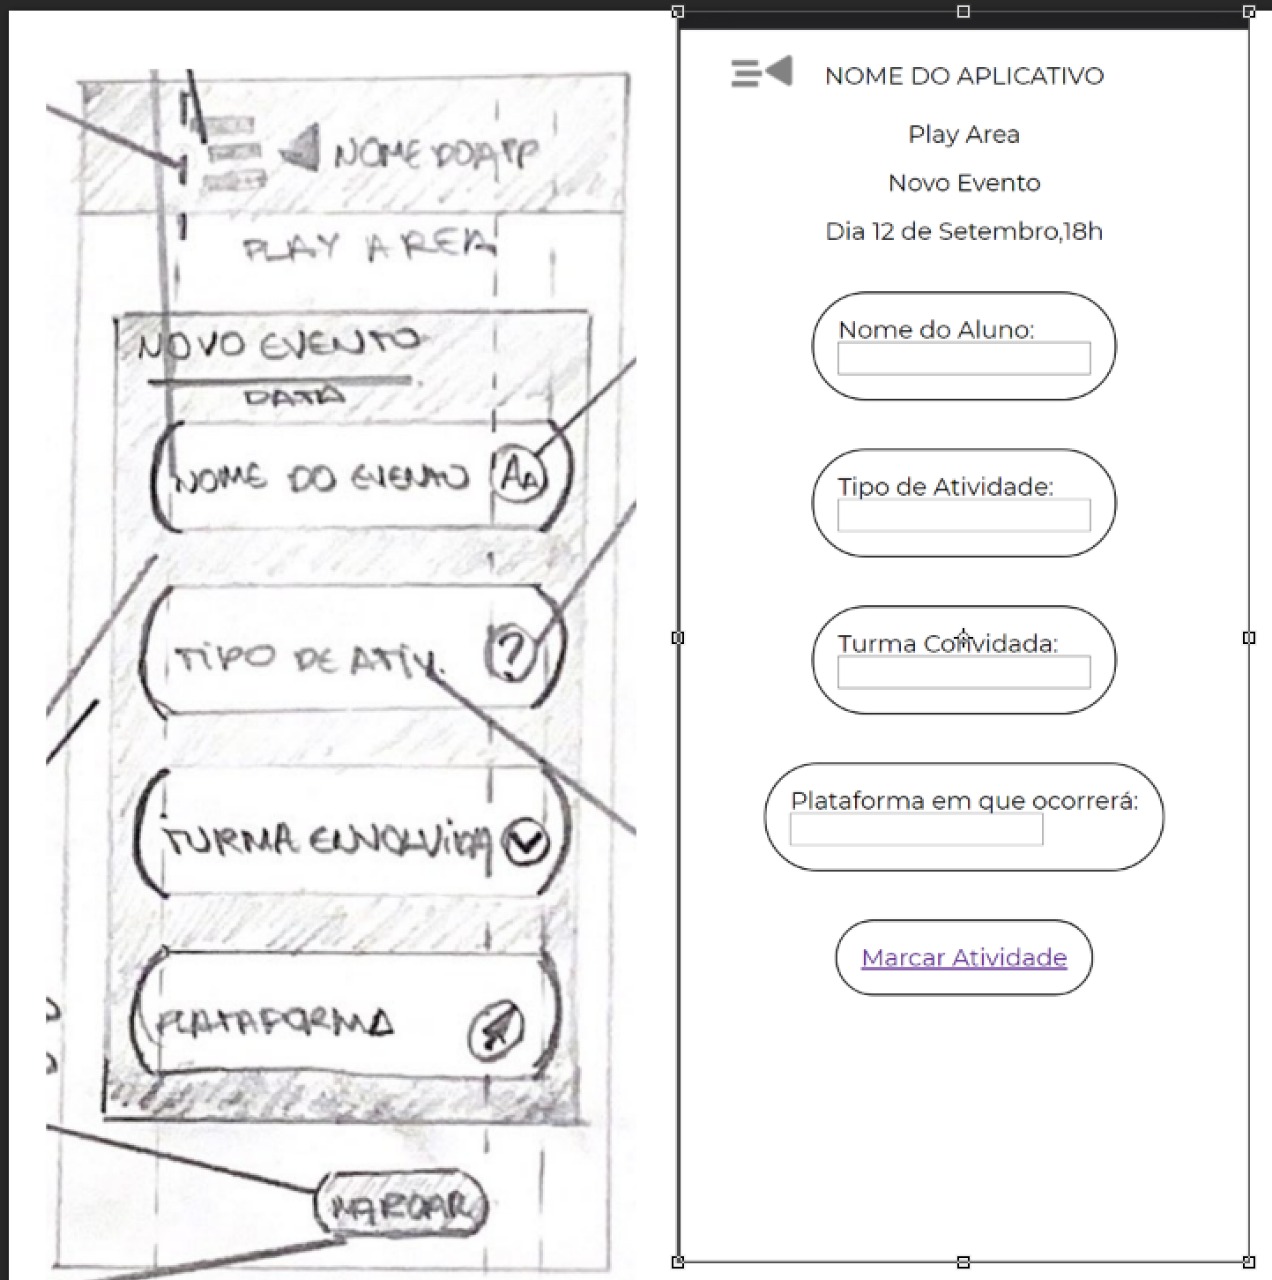 NOME DO APP
PLAY AREA
NOVO EVENTO
DATA
NOME DO EVENTO
AA
TIPO DE ATIV.
?
TURMA ENVOLVIDA
PLATAFORMA
MARCAR
NOME DO APLICATIVO
Play Area
Novo Evento
Dia 12 de Setembro,18h
Nome do Aluno:
Tipo de Atividade:
Turma Convidada:
Plataforma em que ocorrerá:
Marcar Atividade